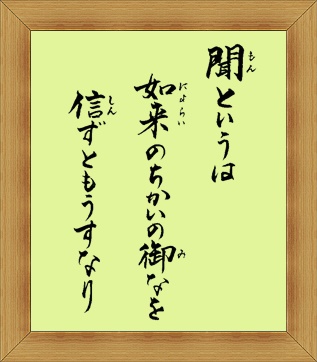 聞というは
如来のちかいの御なを
信ずともうすなり
もん
にょらい
み
しん